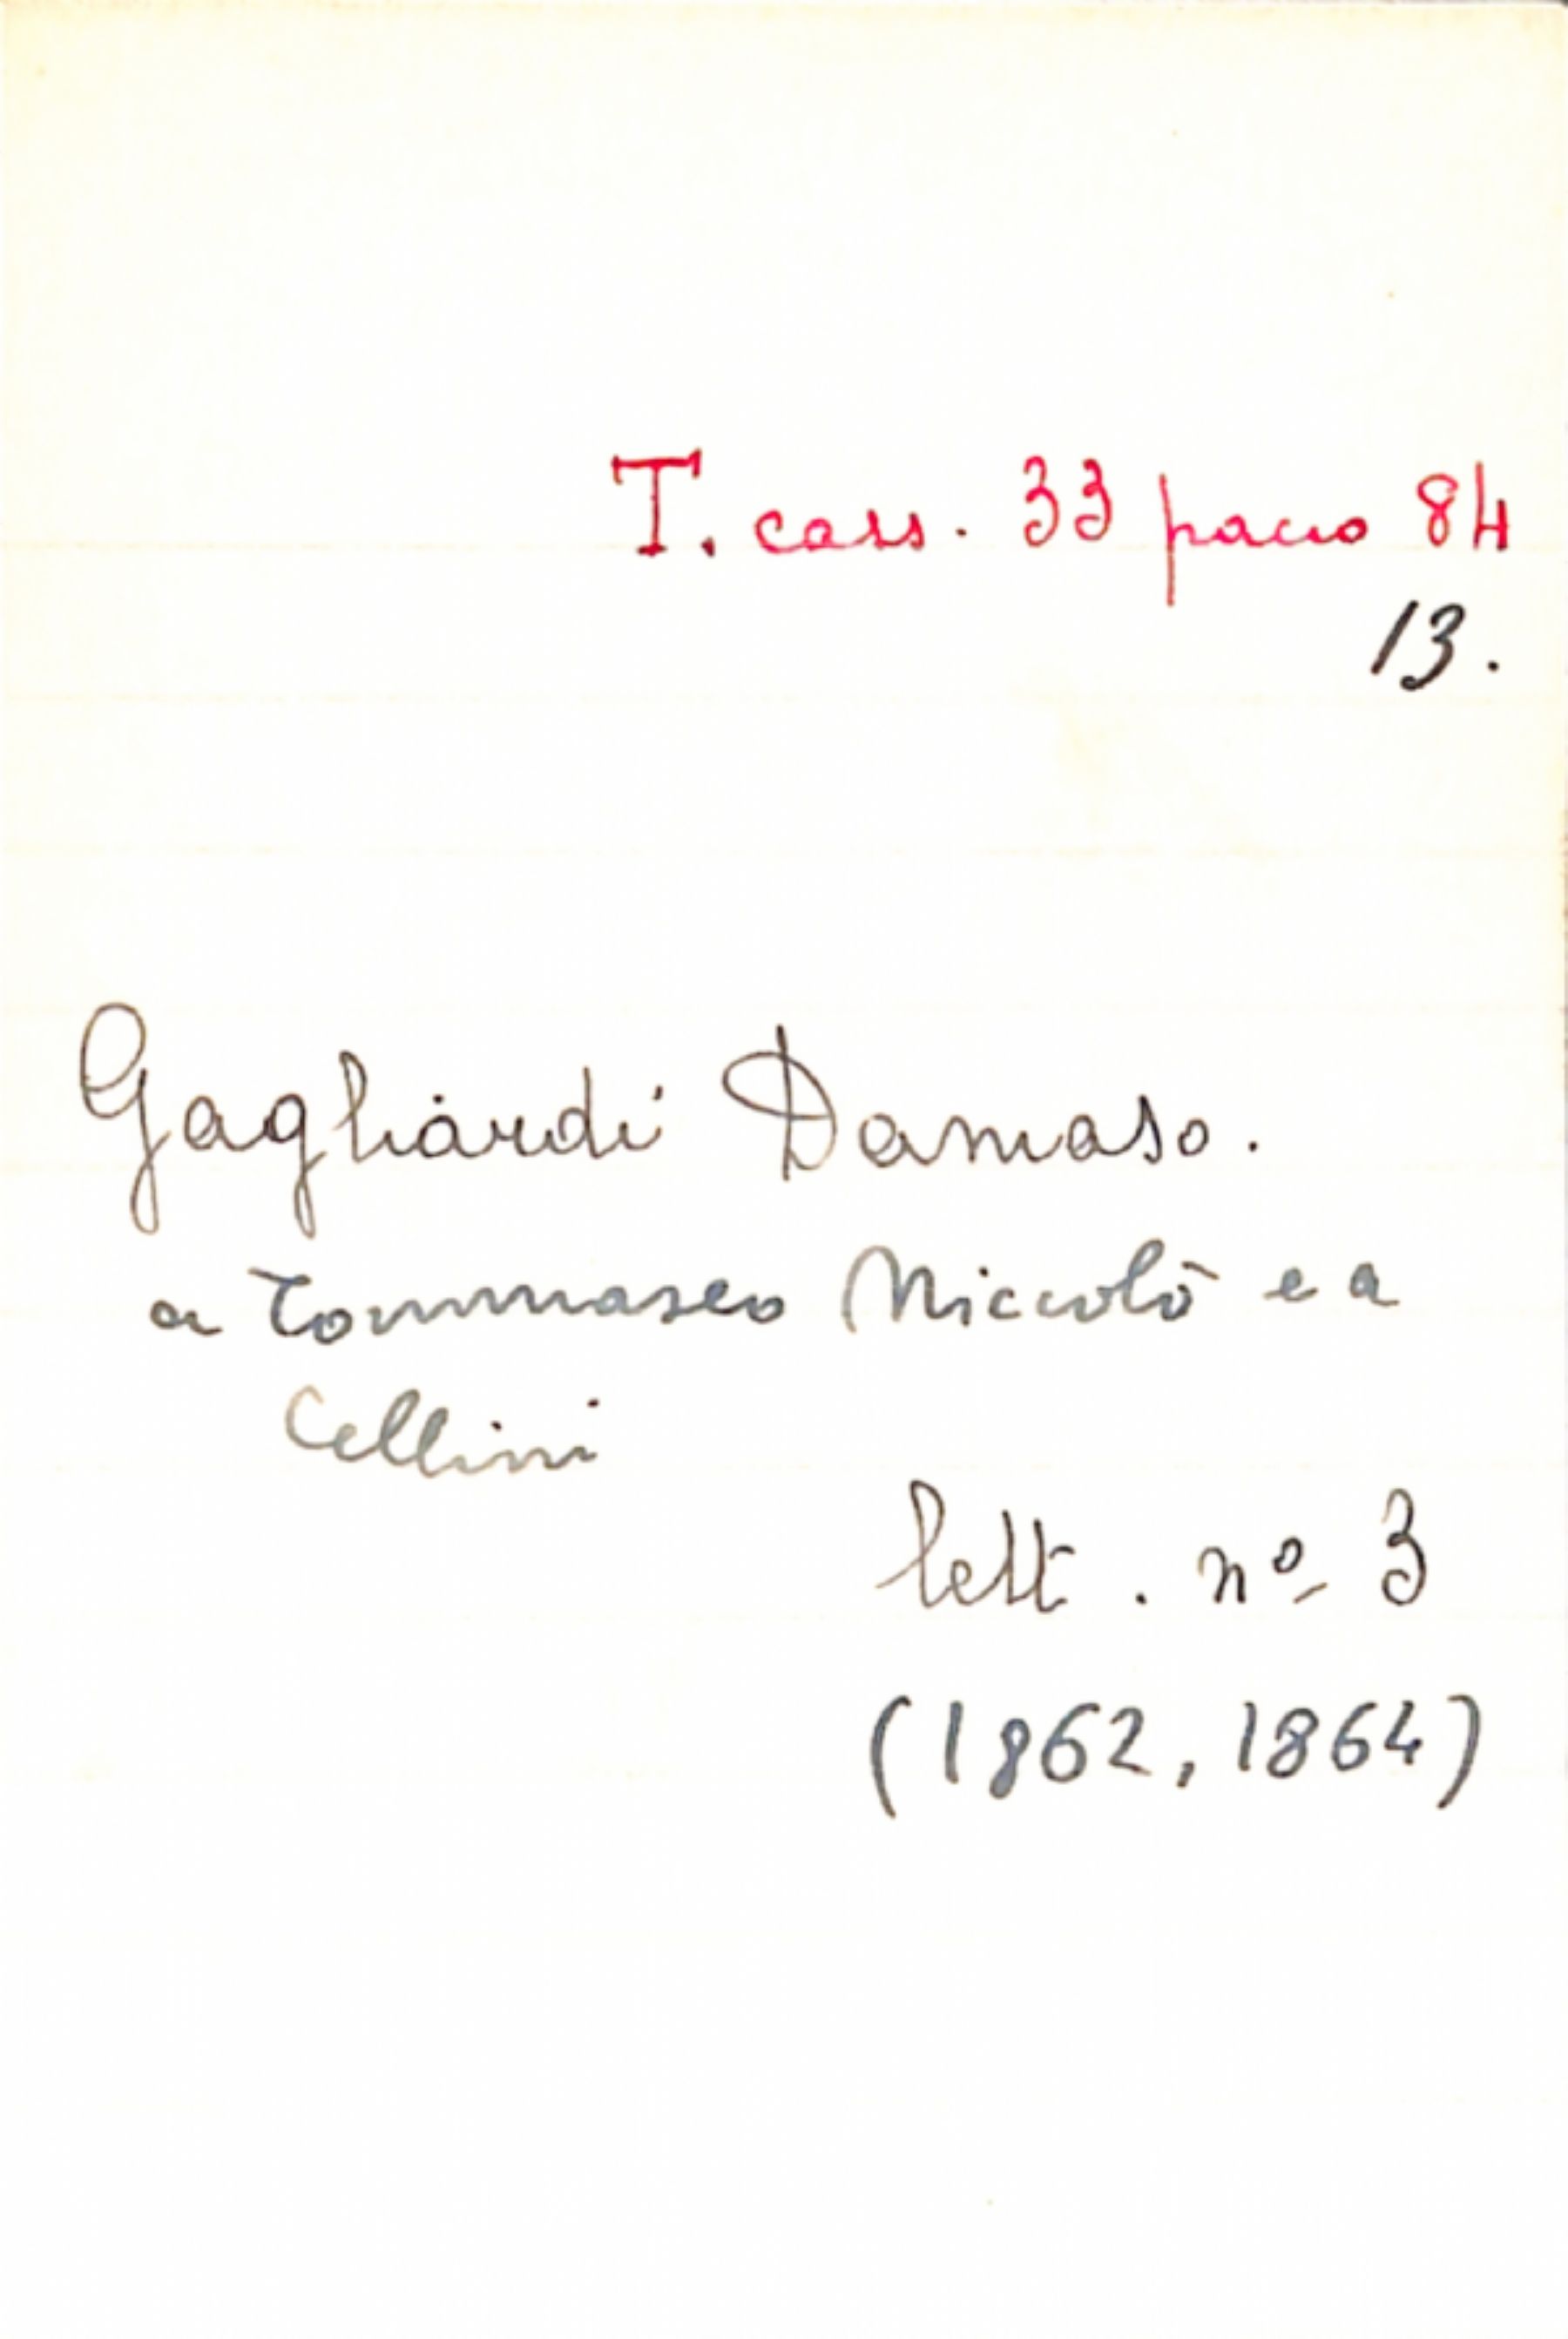 T. cass. 33 pacco 84
13.
Gagliardi Damaso.
a Tommaseo Niccolò e a
Cellini
lett. nº 3
(1862, 1864)